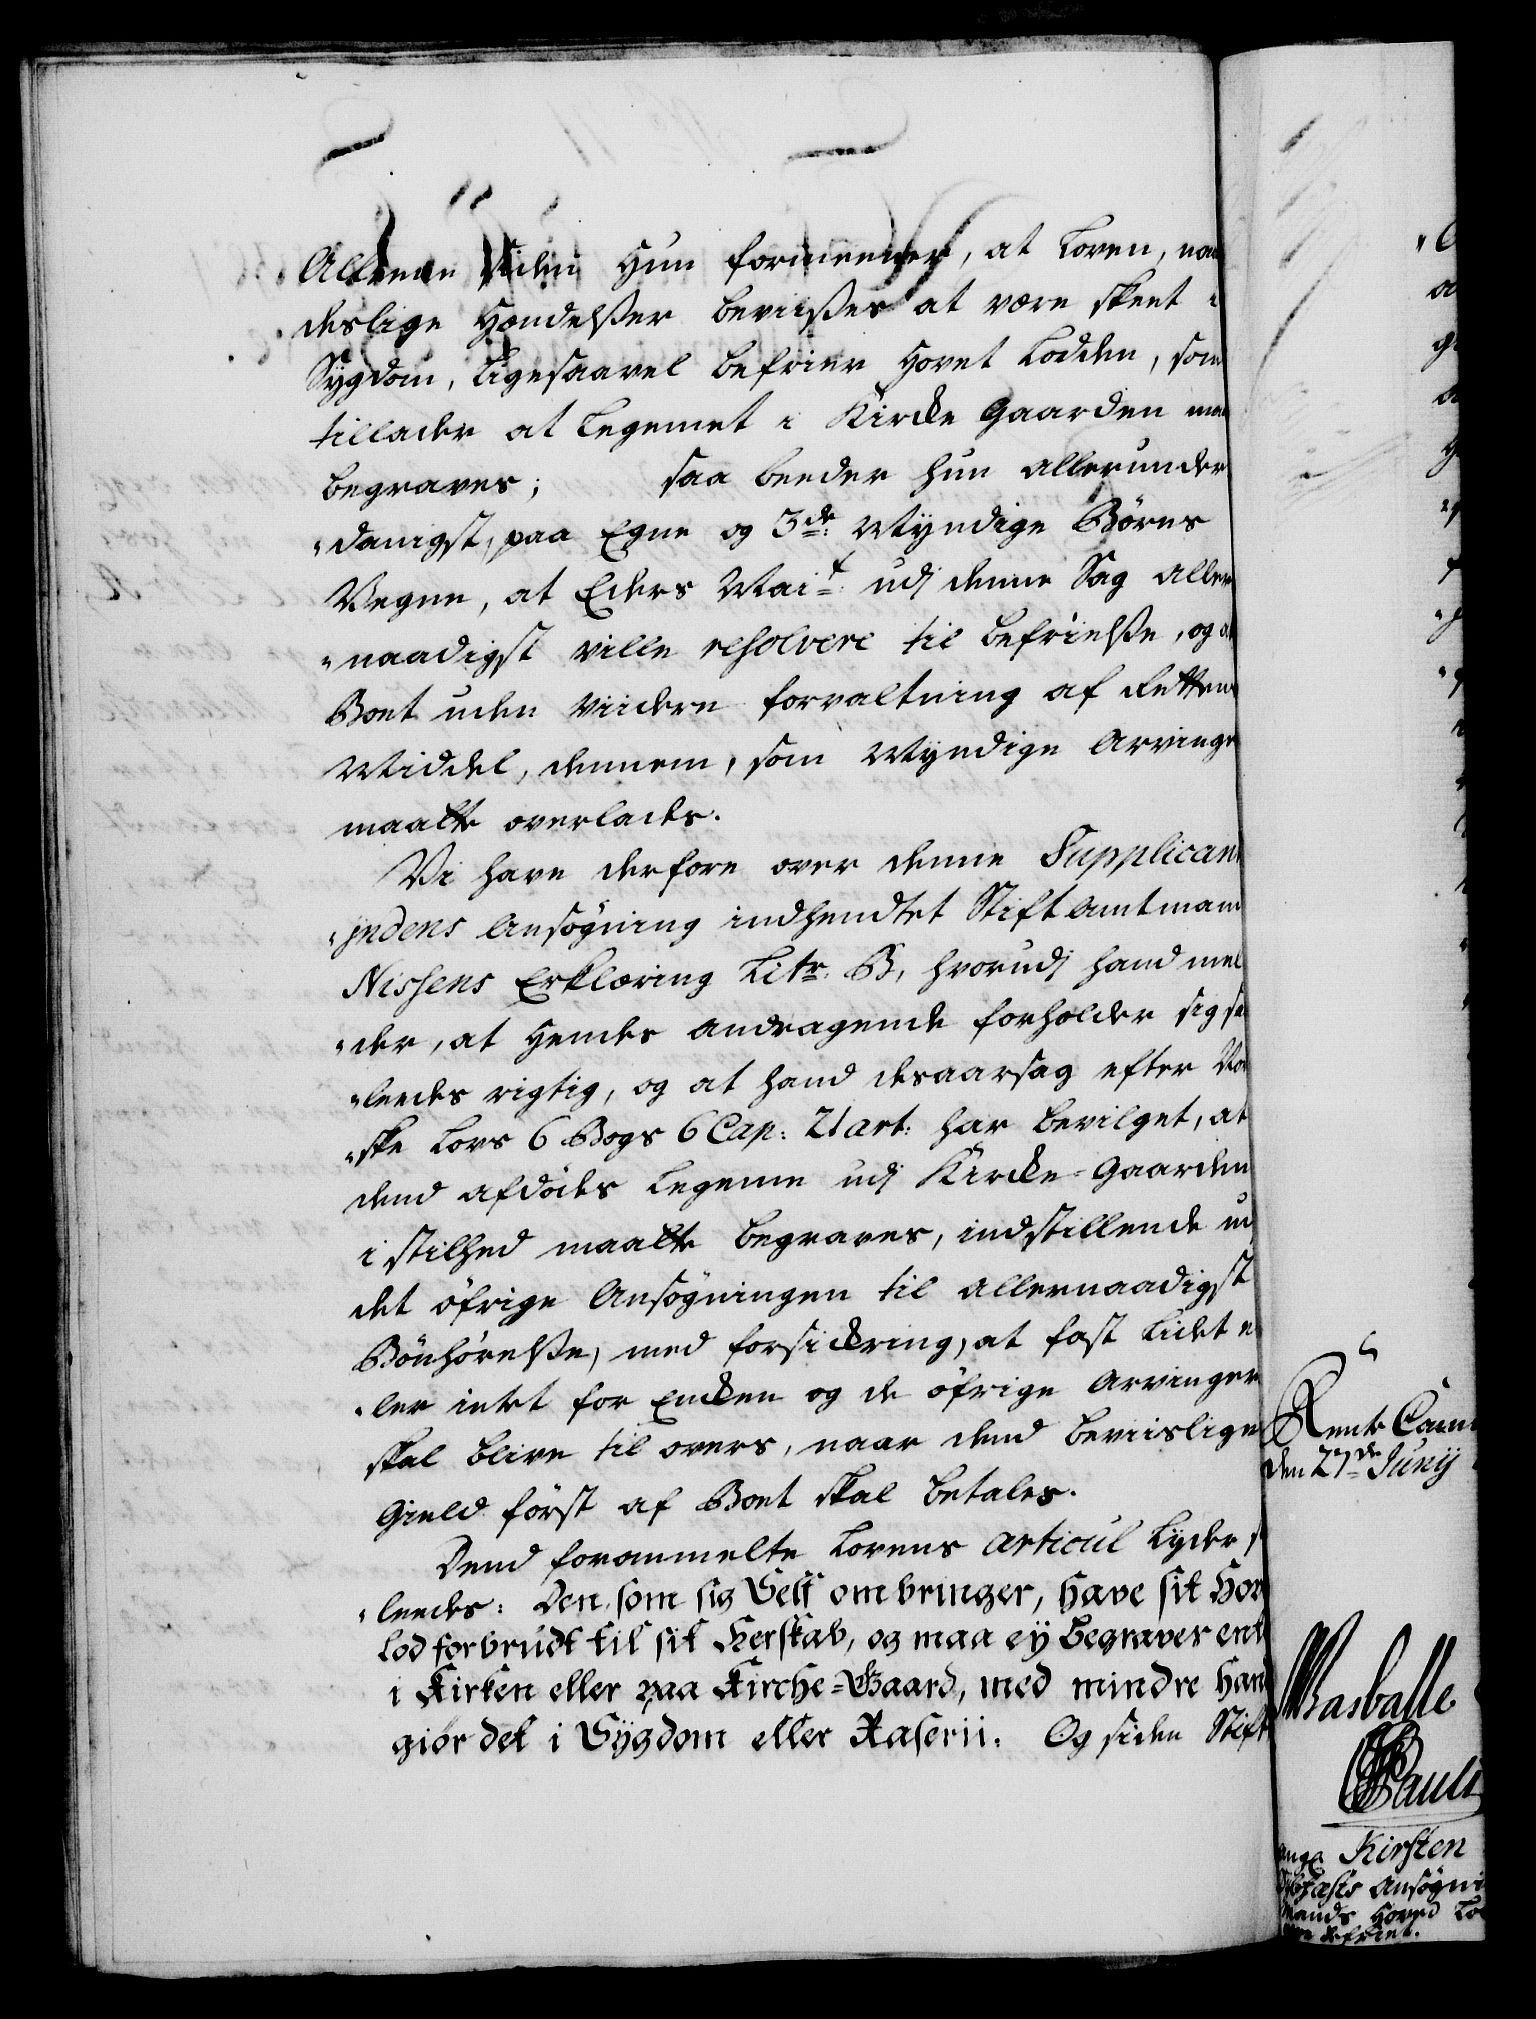 Allene siden Hun formeener, at Loven, naa
deslige Hændelsser beviisses at være skeet i
Sygdom, ligesaavel befrier Hovet Lodden, som
tillader at Legemet i Kircke Gaarden maa
begraves; saa beeder hun allerunder
"danigst, paa Egne og 3de Myndige Børns
Vegne, at Eders Mait udj denne Sag aller
"naadigst ville resolvere til befrielsse, og at
Boet uden viidere forvaltning af Rettens
Middel, dennem, som Myndige Arvinge
maatte overlades.
Vi have derfore over denne Supplicant
"jndens Ansøgning indhendtet Stiftamtmand
Nissens Erklæring Litr. B, hvorudj hand mel
"der, at Hendes andragende forholder sig saa
"leedes rigtig, og at hand desaarsag efter Nor
"ske Lovs 6 Bogs 6 Cap: 21 art: har bevilget, at
dend afdødes Legeme udj Kircke-Gaarden
i stilhed maatte begraves, indstillende ud
det øfrige Ansøgningen til allernaadigst
Bønhørelsse, med forsickring, at fast lidet el
"ler intet for Encken og de øfrige Arvinger
skal blive til overs, naar dend beviislige
Gield først af Boet skal betales.
Dend forommelte Lovens articul lyder s
"leedes: Den som sig Self ombringer, have sit Hov
lod forbrudt til sit Herskab, og maa ey begraves ent
i Kirken eller paa Kirche-Gaard, med mindre hand
giør det i Sygdom eller Raserii. Og siden Stift
Rente Cam
den 27de Junij
Basballe
Pauli
ang. Kirsten
Ansøgni
Mands Hoved Lo
befriet.